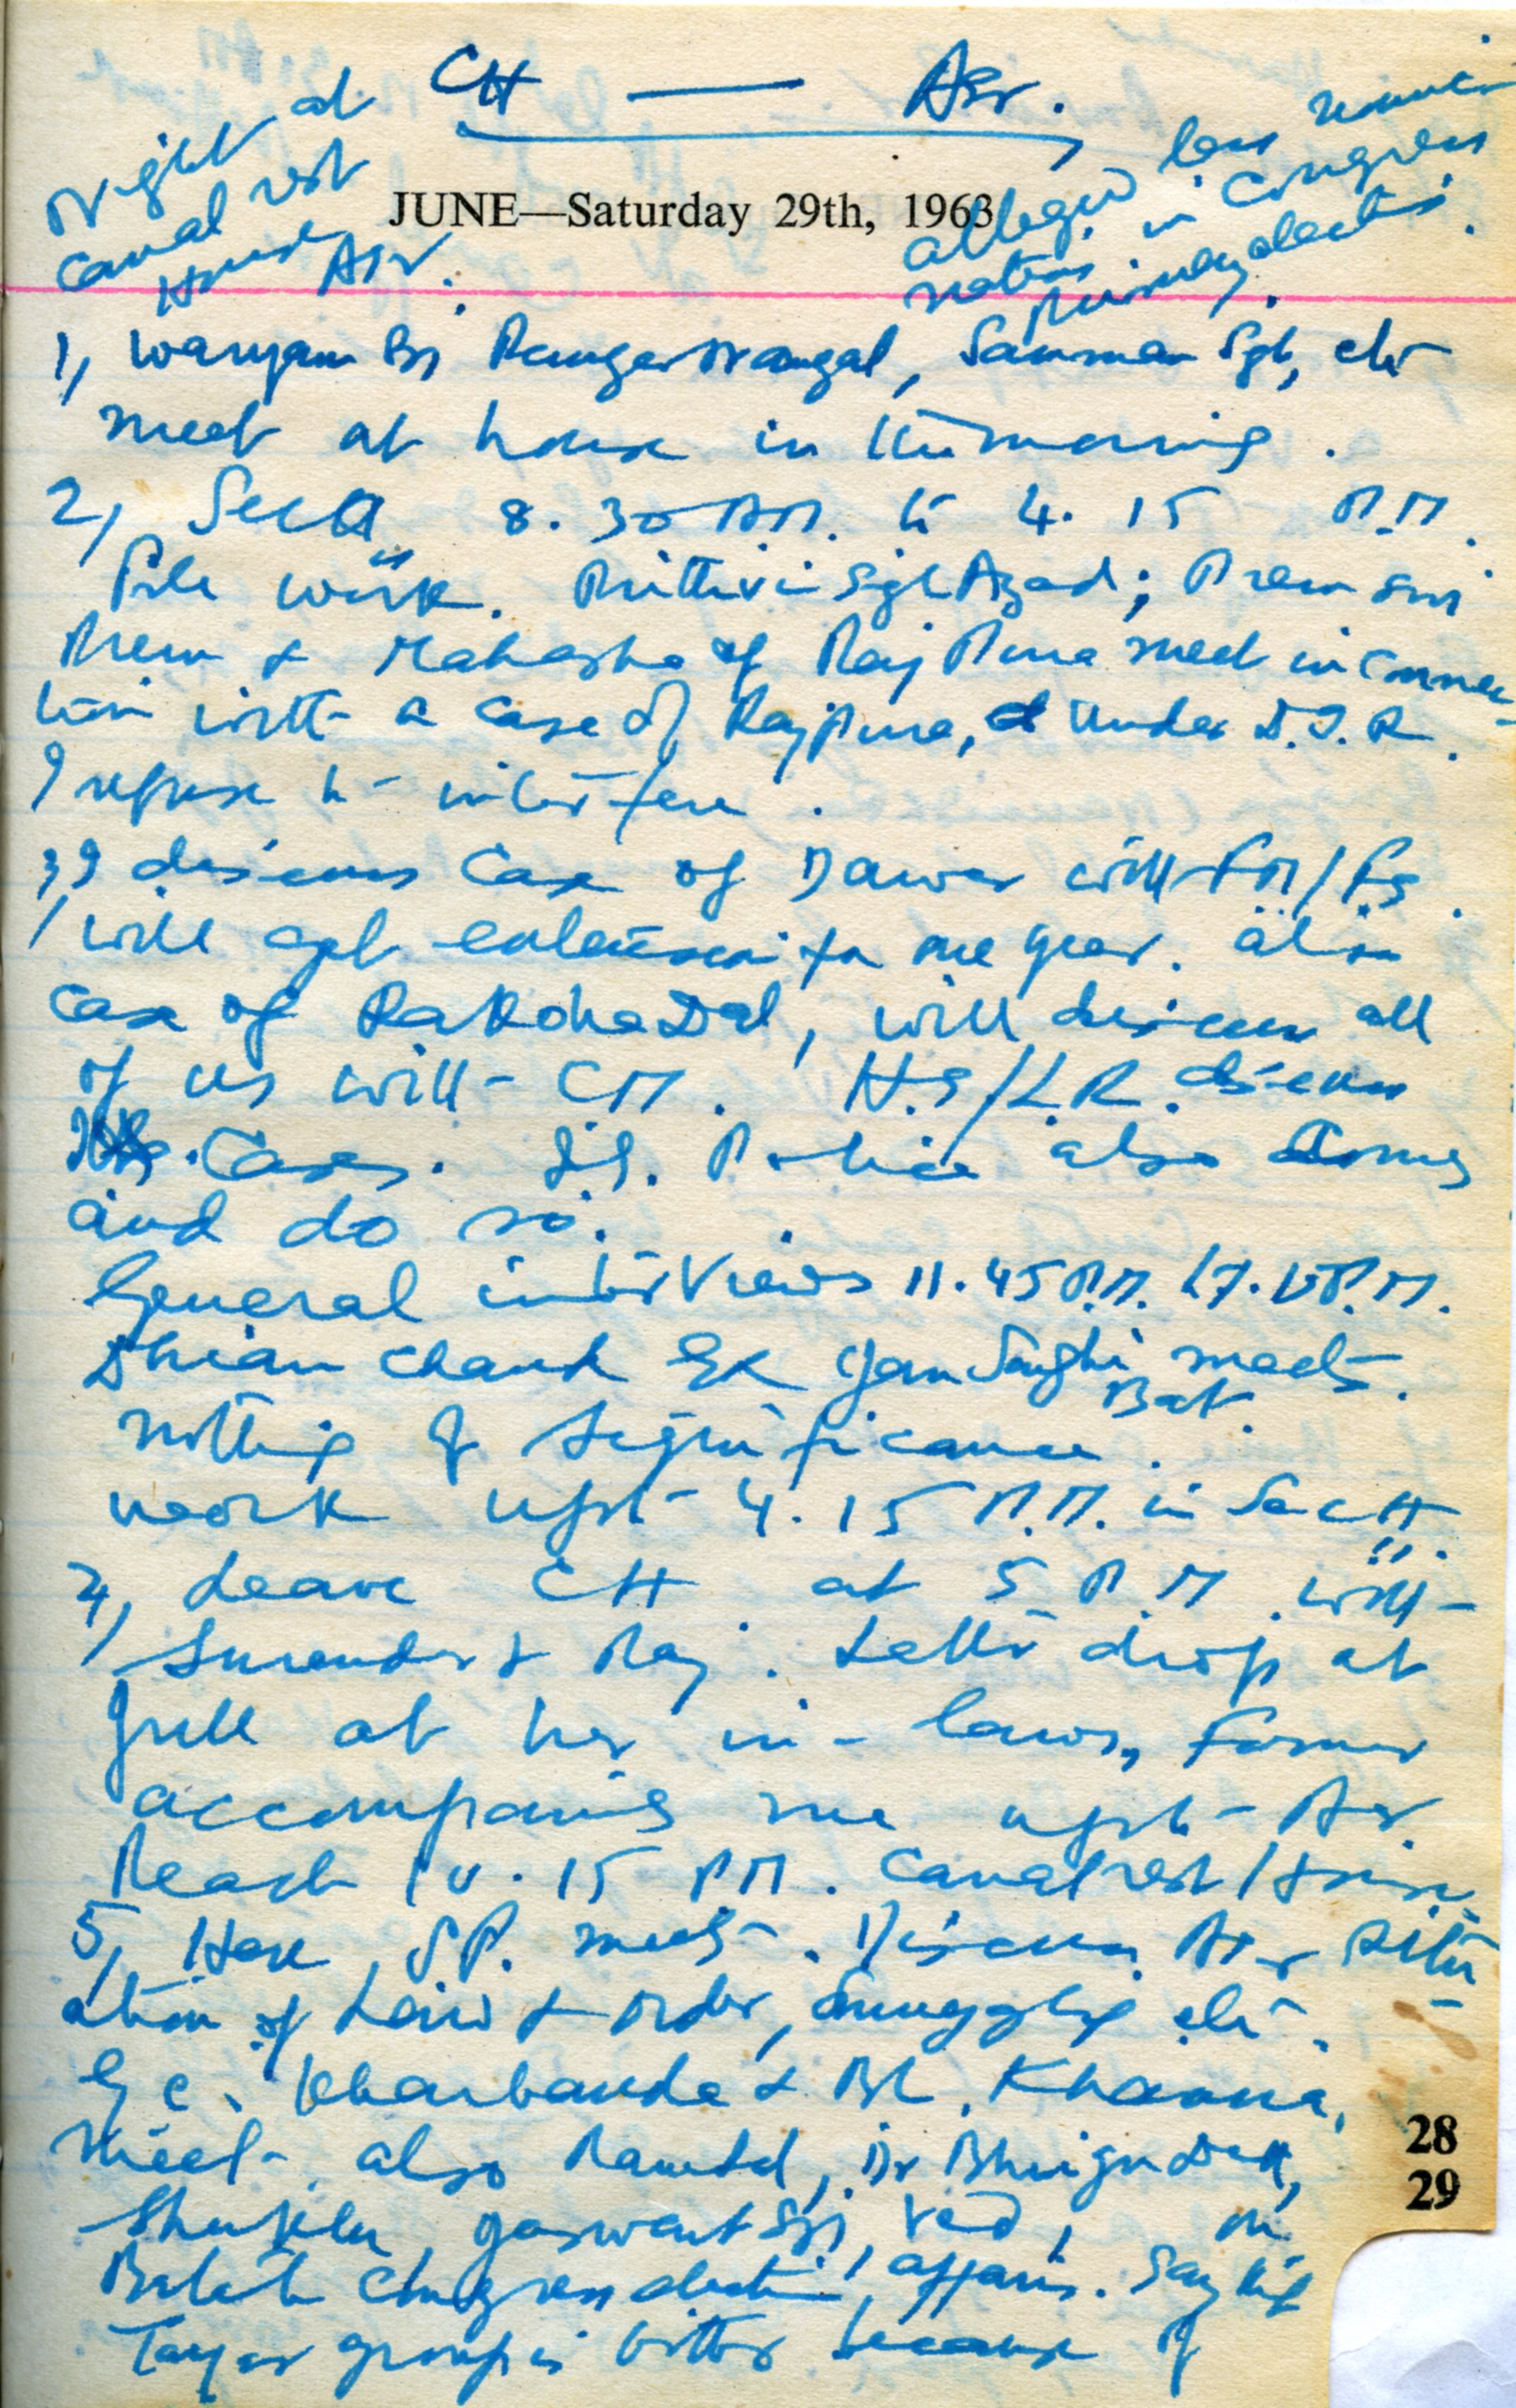 CH — Asr.
Night at
Canal rest
House Asr.
JUNE—Saturday 29th, 1963
alleged less
in Congress
Primary elections.
1, Waryam Sgh, Sanman Sgh, etc
meet at house in the morning.
2, Sectt 8.30 AM. to 4.15 P.M.
File work. Prithvi Sgh Azad; Prem
Prem & Mahasha of Rajpura meet in connec-
tion with a case of Rajpura, under D.I.R.
I refuse to interfere.
3, I discuss case of Dawer with FM/FS.
will get extension for one year. also
case of Rakoha Dal, will discuss all
of us with CM. H.S/L.R. discuss
Cases. I.G. Police also comes
and do so.
General interviews 11.45 P.M. P.M.
Dhian Chand Ex Jan Sanghi meets.
Nothing of significance.
work upto 4.15 P.M. in Sectt.
4, Leave CH at 5 P.M. with
Surender & Raj. Latter drop at
at her in-laws, Former
accompanies me upto Asr.
Reach 10.15 PM. Canal rest House
5, Here S.P. meets. Discuss Asr situ-
ation of Law & order, smuggling etc.
G.C. Kharbanda & BL. Khanna,
meet. also Ramlal, Dr Bhrigu Dutt,
Shukla, Jaswant Sgh, Ved, on
Batala Congress election affairs. Say that
group is bitter because of